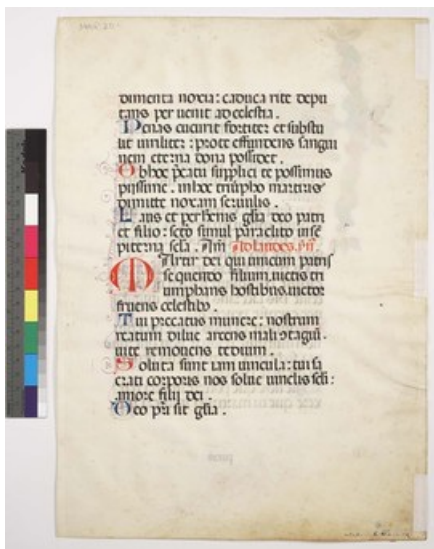 dimenta noxia: caduca rite depu
tans per uenit ad celestia.
Penas cucurit fortiter et substu
lit uiriliter: pro te effundens sangui
nem eterna dona possidet.
Ob hoc pcatu supplici te possimus
piissime. in hoc triupho martiris
dimitte noxam seruulis.
Laus et perhennis glia deo patri
et filio: scto simul paraclito in se
piterna scla. Am Ad laudes. ym.
Martir dei qui unicum patris
sequendo filium. uictis tri
umphans hostibus. uictor
fruens celestibus.
Tui precatus munere: nostrum
reatum dilue arcens mali 9tagiu.
uite remouens tedium.
Soluta sunt iam uincula: tui sa
crati corporis nos solue uinclis scli:
amore filii dei.
Deo pri sit glia.